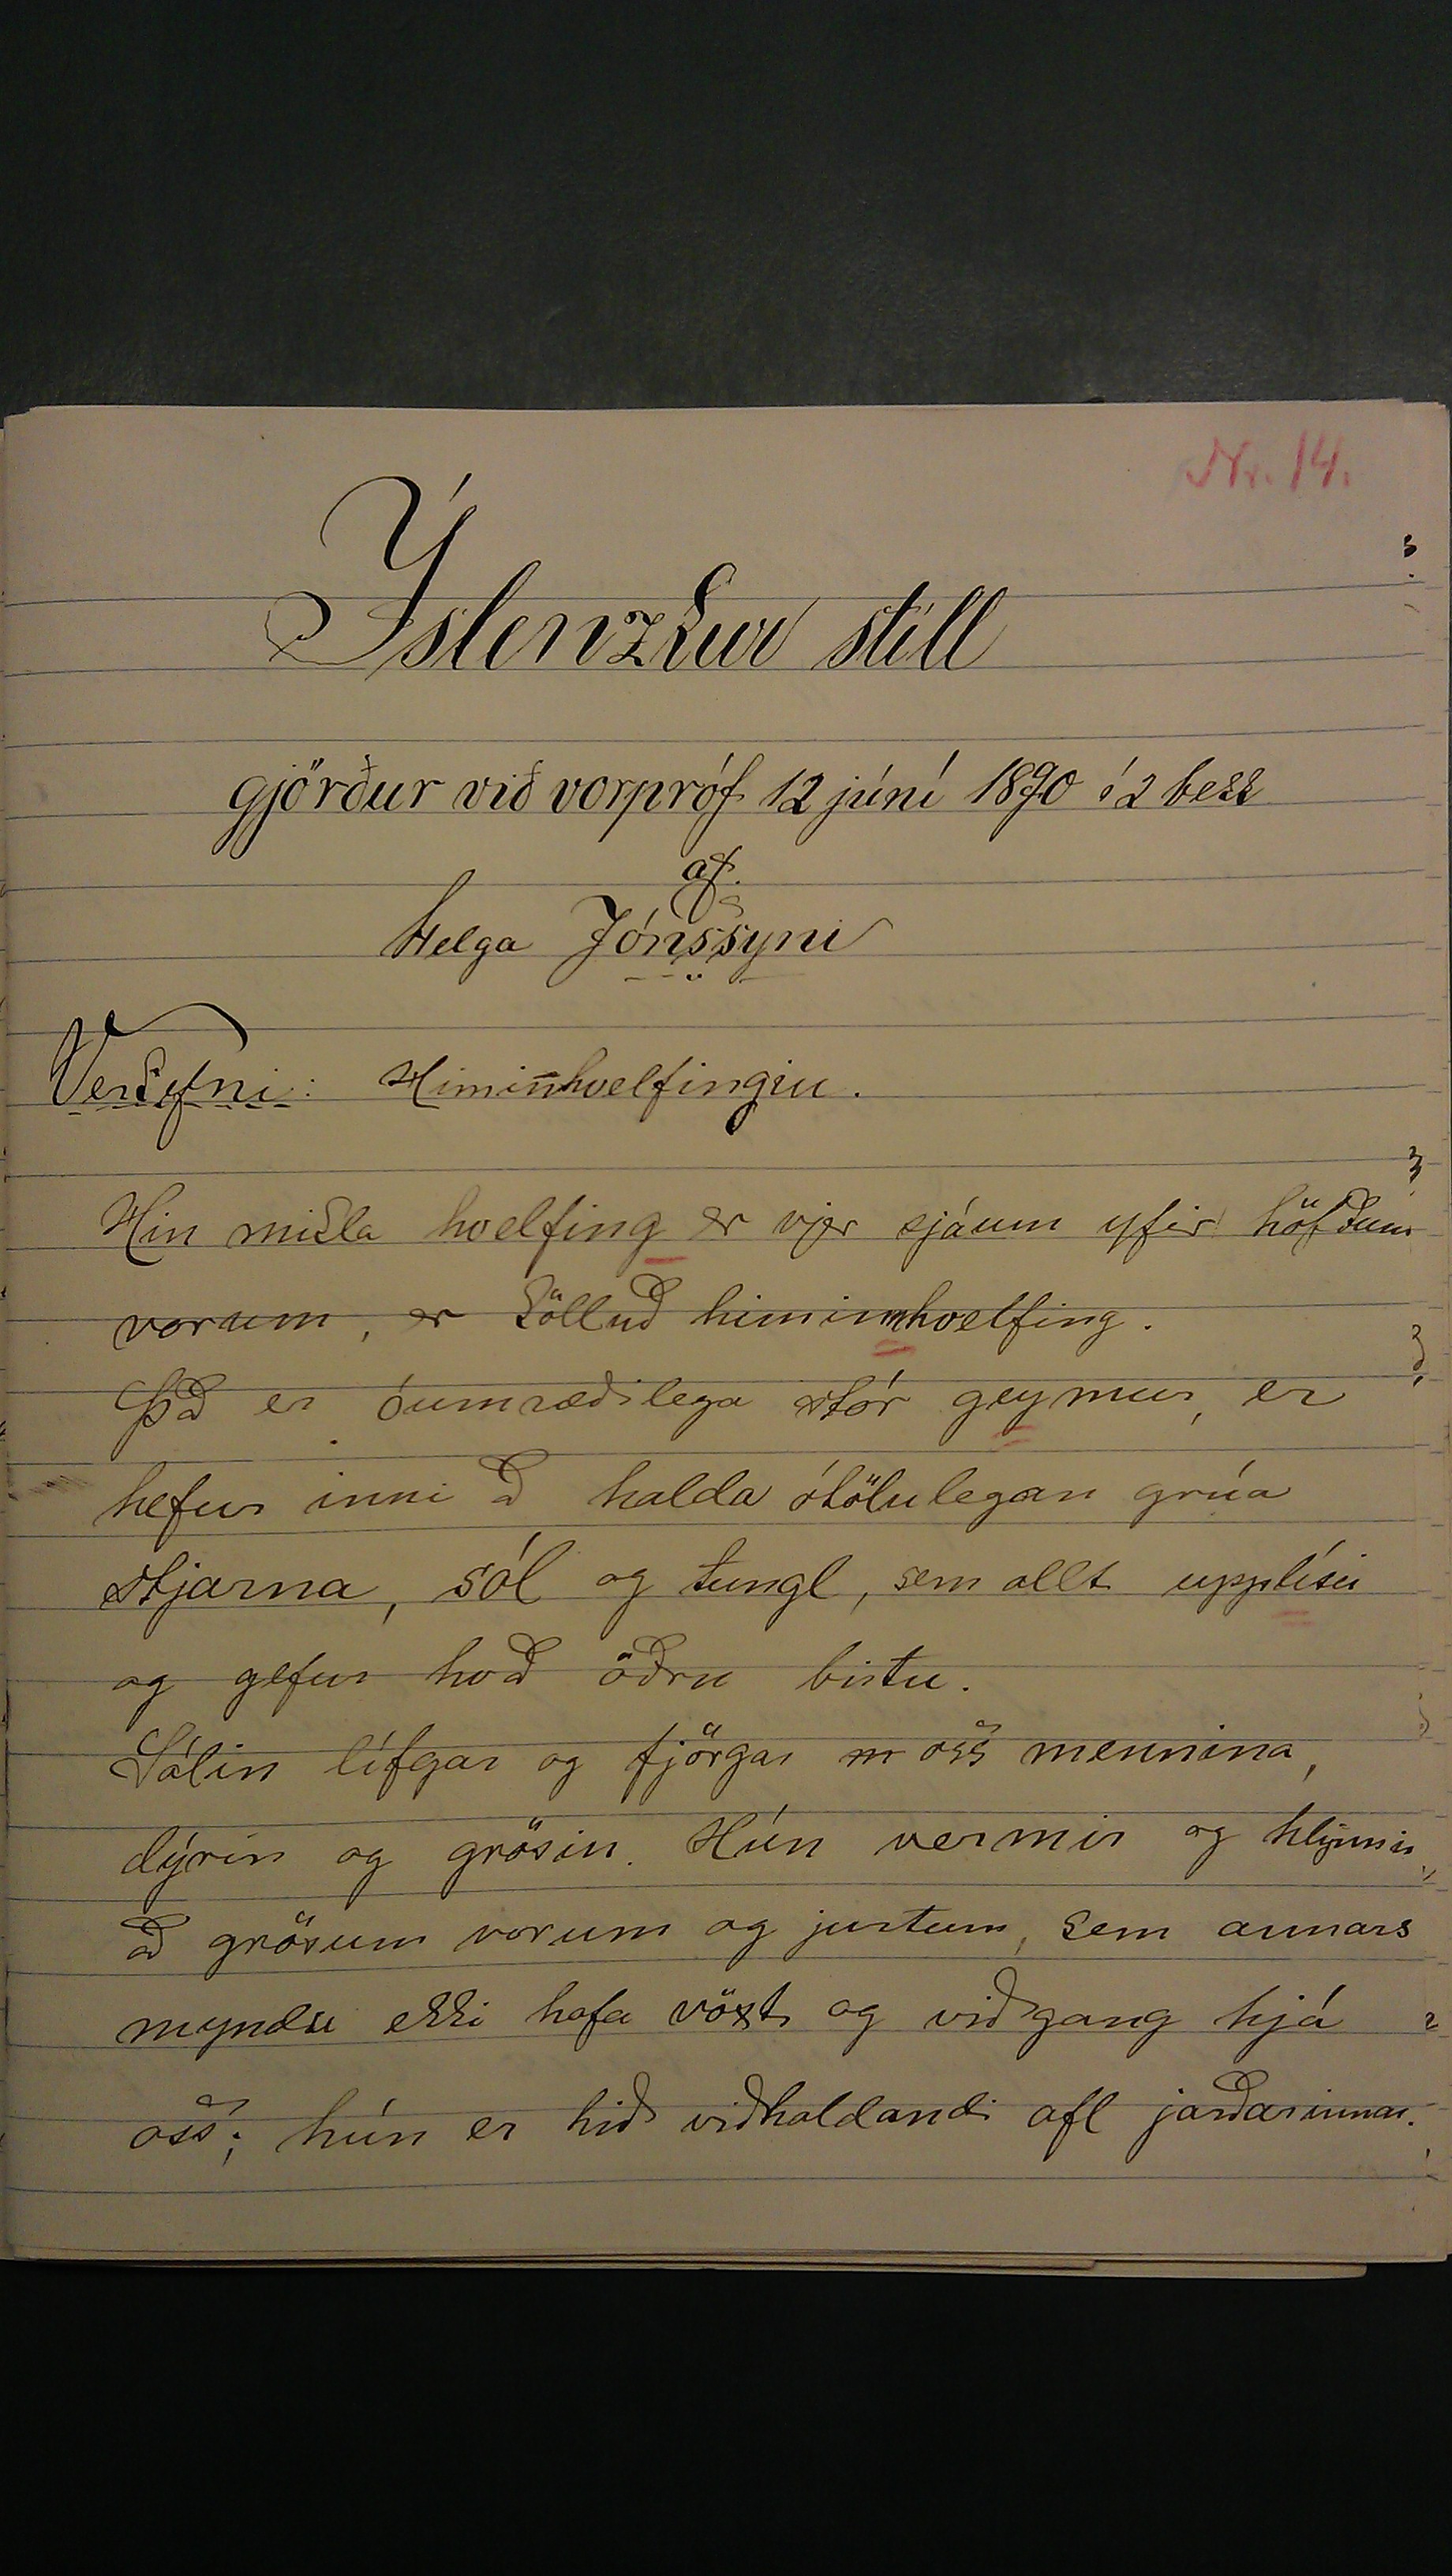 Nr. 14.
Íslenzkur stíll
gjörður við vorpróf 12 júní 1890 í 2 bekk
af.
Helga Jónssyni
Verkefni: Himinhvelfingin.
Hin mikla hvelfing er vjer sjáum yfir höfðum
vorum, er kölluð himinnhvelfing.
Það er óumræðilega stór geymur, er
hefur inni að halda ótölulegan grúa
stjarna, sól og tungl, sem allt upplísir
og gefur hvað öðru birtu.
Sólin lífgar og fjörgar oss mennina,
dýrin og grösin. Hún vermir og hlynnir
að grösum vorum og jurtum, sem annars
myndu ekki hafa vöxt og viðgang hjá
oss; hún er hið viðhaldandi afl jarðarinnar.